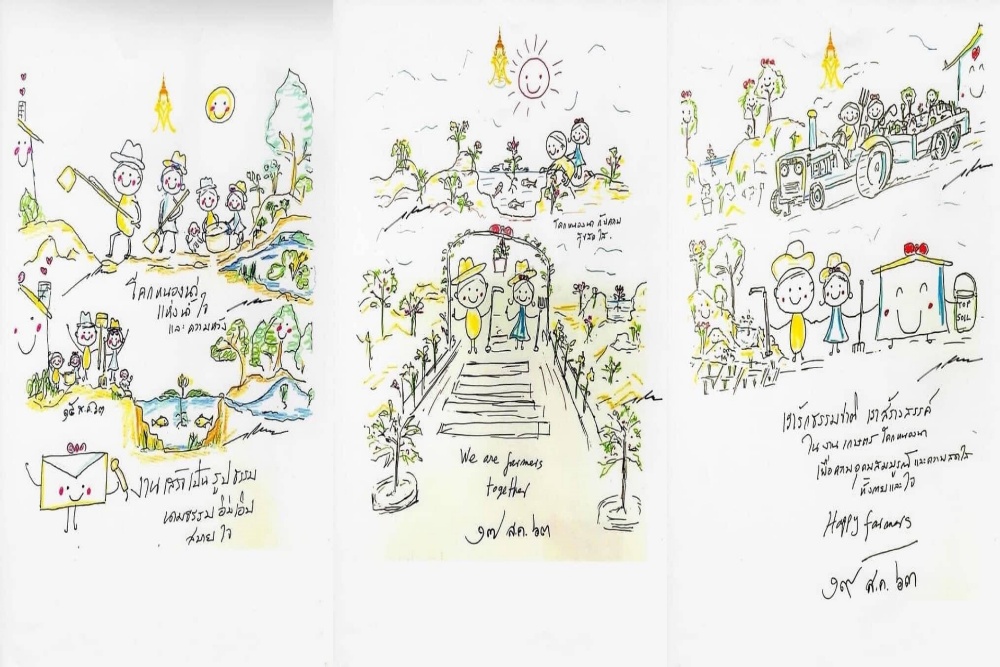 โคกหนองนา
แห่งน้ำใจ
และความหวัง
๑๕ พ.ค. ๖๓
งานเสร็จเป็นรูปธรรม
นามธรรมอิ่มเอิบ
สบายใจ
โคกหนองนา กับความ
สุขสดใส.
We are farmers
together
๑๗ ส.ค. ๖๓
TOP
SOIL
เรารักธรรมชาติ เราสร้างสรรค์
ในงานเกษตร โคกหนองนา
เพื่อความอุดมสมบูรณ์ และความสดใส
ทั้งกายและใจ
Happy farmers
๑๙ ส.ค. ๖๓